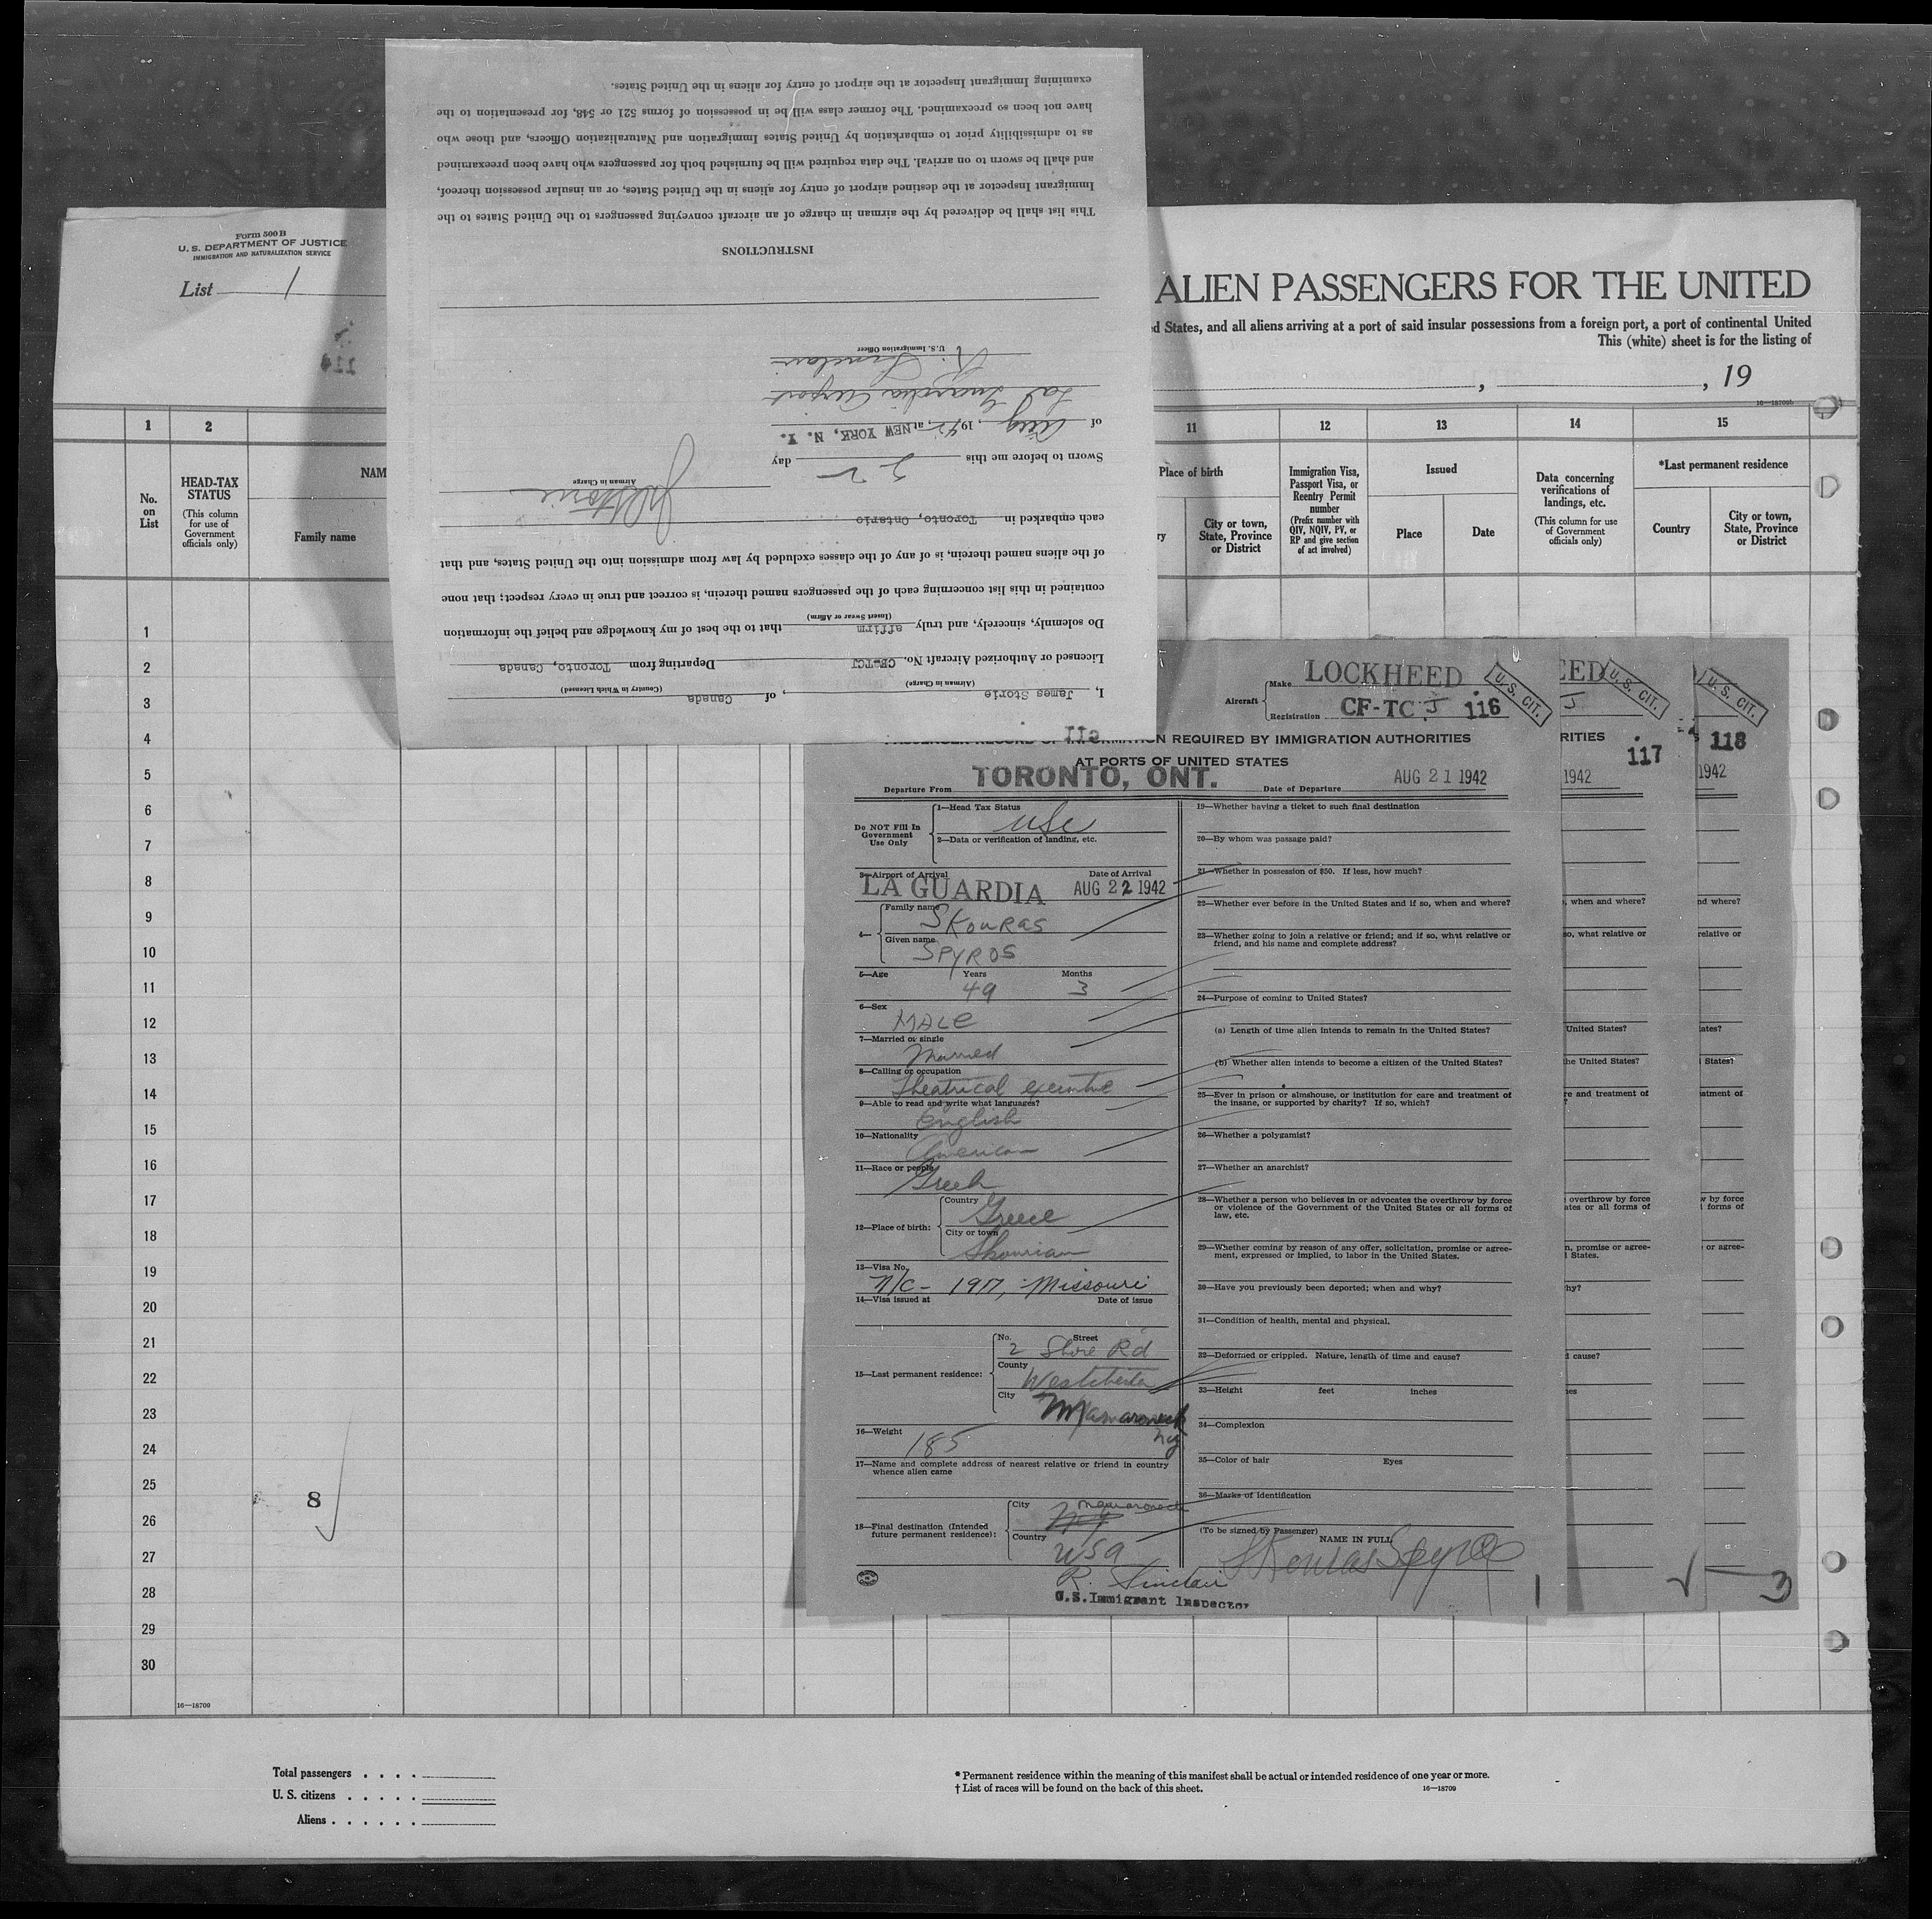 Form 500 B
U. S. DEPARTMENT OF JUSTICE
IMMIGRATION AND NATURALIZATION SERVICE
List 1
114
ALIEN PASSENGERS FOR THE UNITED
d States, and all aliens arriving at a port of said insular possessions from a foreign port, a port of continental United
This (white) sheet is for the listing of
, , 19
16—18709b
1 2 11 12 13 14 15
No. on List
HEAD-TAX STATUS
(This column for use of Government officials only)
NAM
Family name
Place of birth
ry
City or town, State, Province or District
Immigration Visa, Passport Visa, or Reentry Permit number
(Prefix number with QIV, NQIV, PV, or RP and give section of act involved)
Issued
Place
Date
Data concerning verifications of landings, etc.
(This column for use of Government officials only)
*Last permanent residence
Country
City or town, State, Province or District
1
2
3
4
5
6
7
8
9
10
11
12
13
14
15
16
17
18
19
20
21
22
23
24
25
26
27
28
29
30
8
16—18709
Total passengers . . . .
U. S. citizens . . . . .
Aliens . . . . . .
* Permanent residence within the meaning of this manifest shall be actual or intended residence of one year or more.
† List of races will be found on the back of this sheet.
16—18709
I, James Storie, of Canada
(Airman in Charge) (Country in Which Licensed)
Licensed or Authorized Aircraft No. CF-TCJ Departing from Toronto, Canada
Do solemnly, sincerely, and truly affirm that to the best of my knowledge and belief the information
(Insert Swear or Affirm)
contained in this list concerning each of the passengers named therein, is correct and true in every respect; that none
of the aliens named therein, is of any of the classes excluded by law from admission into the United States, and that
each embarked in Toronto, Ontario
Airman in Charge
Sworn to before me this 22 day
of Aug, 1942, at NEW YORK, N. Y.
La Guardia Airport
R Sinclair
U. S. Immigration Officer
INSTRUCTIONS
This list shall be delivered by the airman in charge of an aircraft conveying passengers to the United States to the
Immigrant Inspector at the destined airport of entry for aliens in the United States, or an insular possession thereof,
and shall be sworn to on arrival. The data required will be furnished both for passengers who have been preexamined
as to admissibility prior to embarkation by United States Immigration and Naturalization Officers, and those who
have not been so preexamined. The former class will be in possession of forms 521 or 548, for presentation to the
examining Immigrant Inspector at the airport of entry for aliens in the United States.
Aircraft
Make LOCKHEED
Registration CF-TC J 116
U. S. CIT.
REQUIRED BY IMMIGRATION AUTHORITIES
AT PORTS OF UNITED STATES
Departure From TORONTO, ONT. Date of Departure AUG 21 1942
Do NOT Fill In Government Use Only
1—Head Tax Status
USC
2—Data or verification of landing, etc.
3—Airport of Arrival Date of Arrival
LA GUARDIA AUG 22 1942
4—
Family name
SKOURAS
Given name
SPYROS
5—Age Years Months
49 3
6—Sex
MALE
7—Married or single
Married
8—Calling or occupation
Theatrical executive
9—Able to read and write what languages?
English
10—Nationality
American
11—Race or people
Greek
12—Place of birth:
Country
Greece
City or town
13—Visa No.
N/C - 1917, Missouri
14—Visa issued at Date of issue
15—Last permanent residence:
No. Street
2 Shore Rd
County
Westchester
City
Mamaroneck
NY
16—Weight
185
17—Name and complete address of nearest relative or friend in country whence alien came
18—Final destination (Intended future permanent residence):
City Mamaroneck
Country
USA
R. Sinclair
U.S. Immigrant Inspector
19—Whether having a ticket to such final destination
20—By whom was passage paid?
21—Whether in possession of $50. If less, how much?
22—Whether ever before in the United States and if so, when and where?
23—Whether going to join a relative or friend; and if so, what relative or
friend, and his name and complete address?
24—Purpose of coming to United States?
(a) Length of time alien intends to remain in the United States?
(b) Whether alien intends to become a citizen of the United States?
25—Ever in prison or almshouse, or institution for care and treatment of
the insane, or supported by charity? If so, which?
26—Whether a polygamist?
27—Whether an anarchist?
28—Whether a person who believes in or advocates the overthrow by force
or violence of the Government of the United States or all forms of
law, etc.
29—Whether coming by reason of any offer, solicitation, promise or agree-
ment, expressed or implied, to labor in the United States.
30—Have you previously been deported; when and why?
31—Condition of health, mental and physical.
32—Deformed or crippled. Nature, length of time and cause?
33—Height feet inches
34—Complexion
35—Color of hair Eyes
36—Marks of identification
(To be signed by Passenger)
NAME IN FULL
Skouras Spyros
1
EED
U. S. CIT.
J
RITIES
117
1942
, when and where?
so, what relative or
United States?
the United States?
re and treatment of
overthrow by force
ates or all forms of
n, promise or agree-
l States.
hy?
d cause?
es
U. S. CIT.
118
1942
nd where?
relative or
ates?
States?
atment of
w by force
forms of
or agree-
3